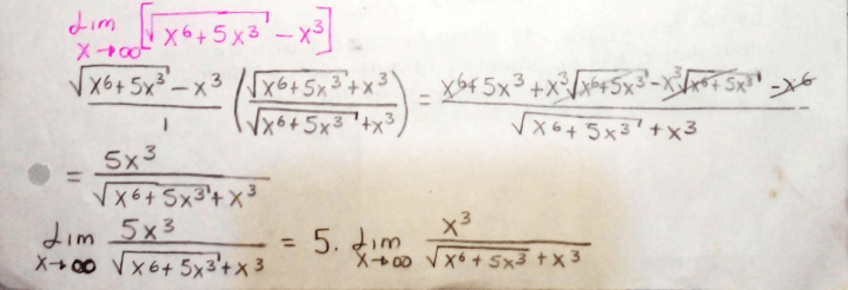 lim x→∞ [√(x⁶+5x³) - x³]
(√(x⁶+5x³) - x³)/1 ((√(x⁶+5x³)+x³)/(√(x⁶+5x³)+x³)) = (x⁶+5x³+x³√(x⁶+5x³)-x³√(x⁶+5x³)-x⁶)/(√(x⁶+5x³)+x³)
= 5x³/(√(x⁶+5x³)+x³)
lim x→∞ 5x³/(√(x⁶+5x³)+x³) = 5. lim x→∞ x³/(√(x⁶+5x³)+x³)